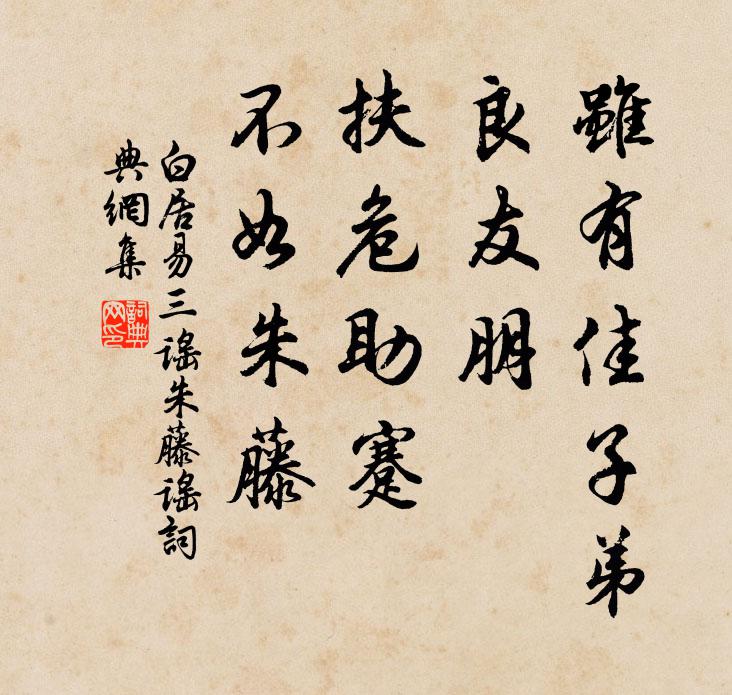 雖有佳子弟
良友朋
扶危助蹇
不如朱藤
白居易三謡朱藤謡詞
典網集
詞典
网印